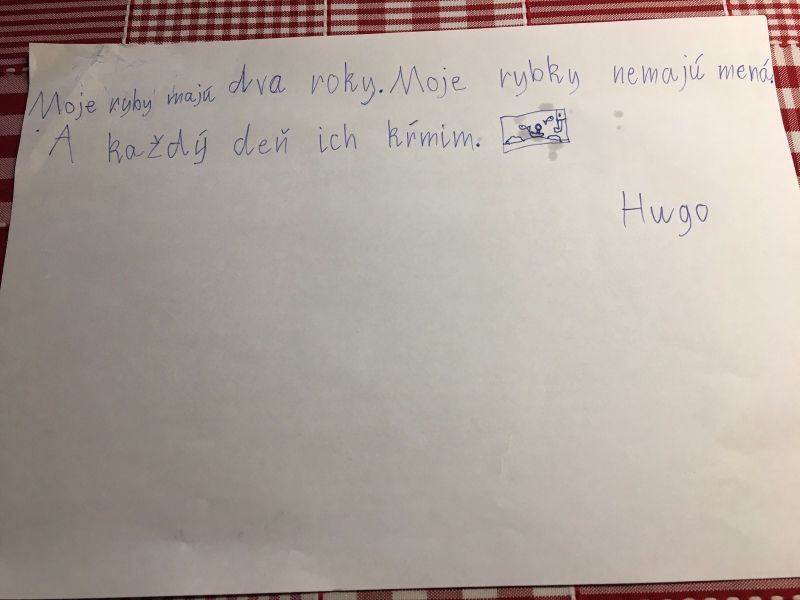 Moje ryby majú dva roky. Moje rybky nemajú mená.
A každý deň ich kŕmim.
Hugo